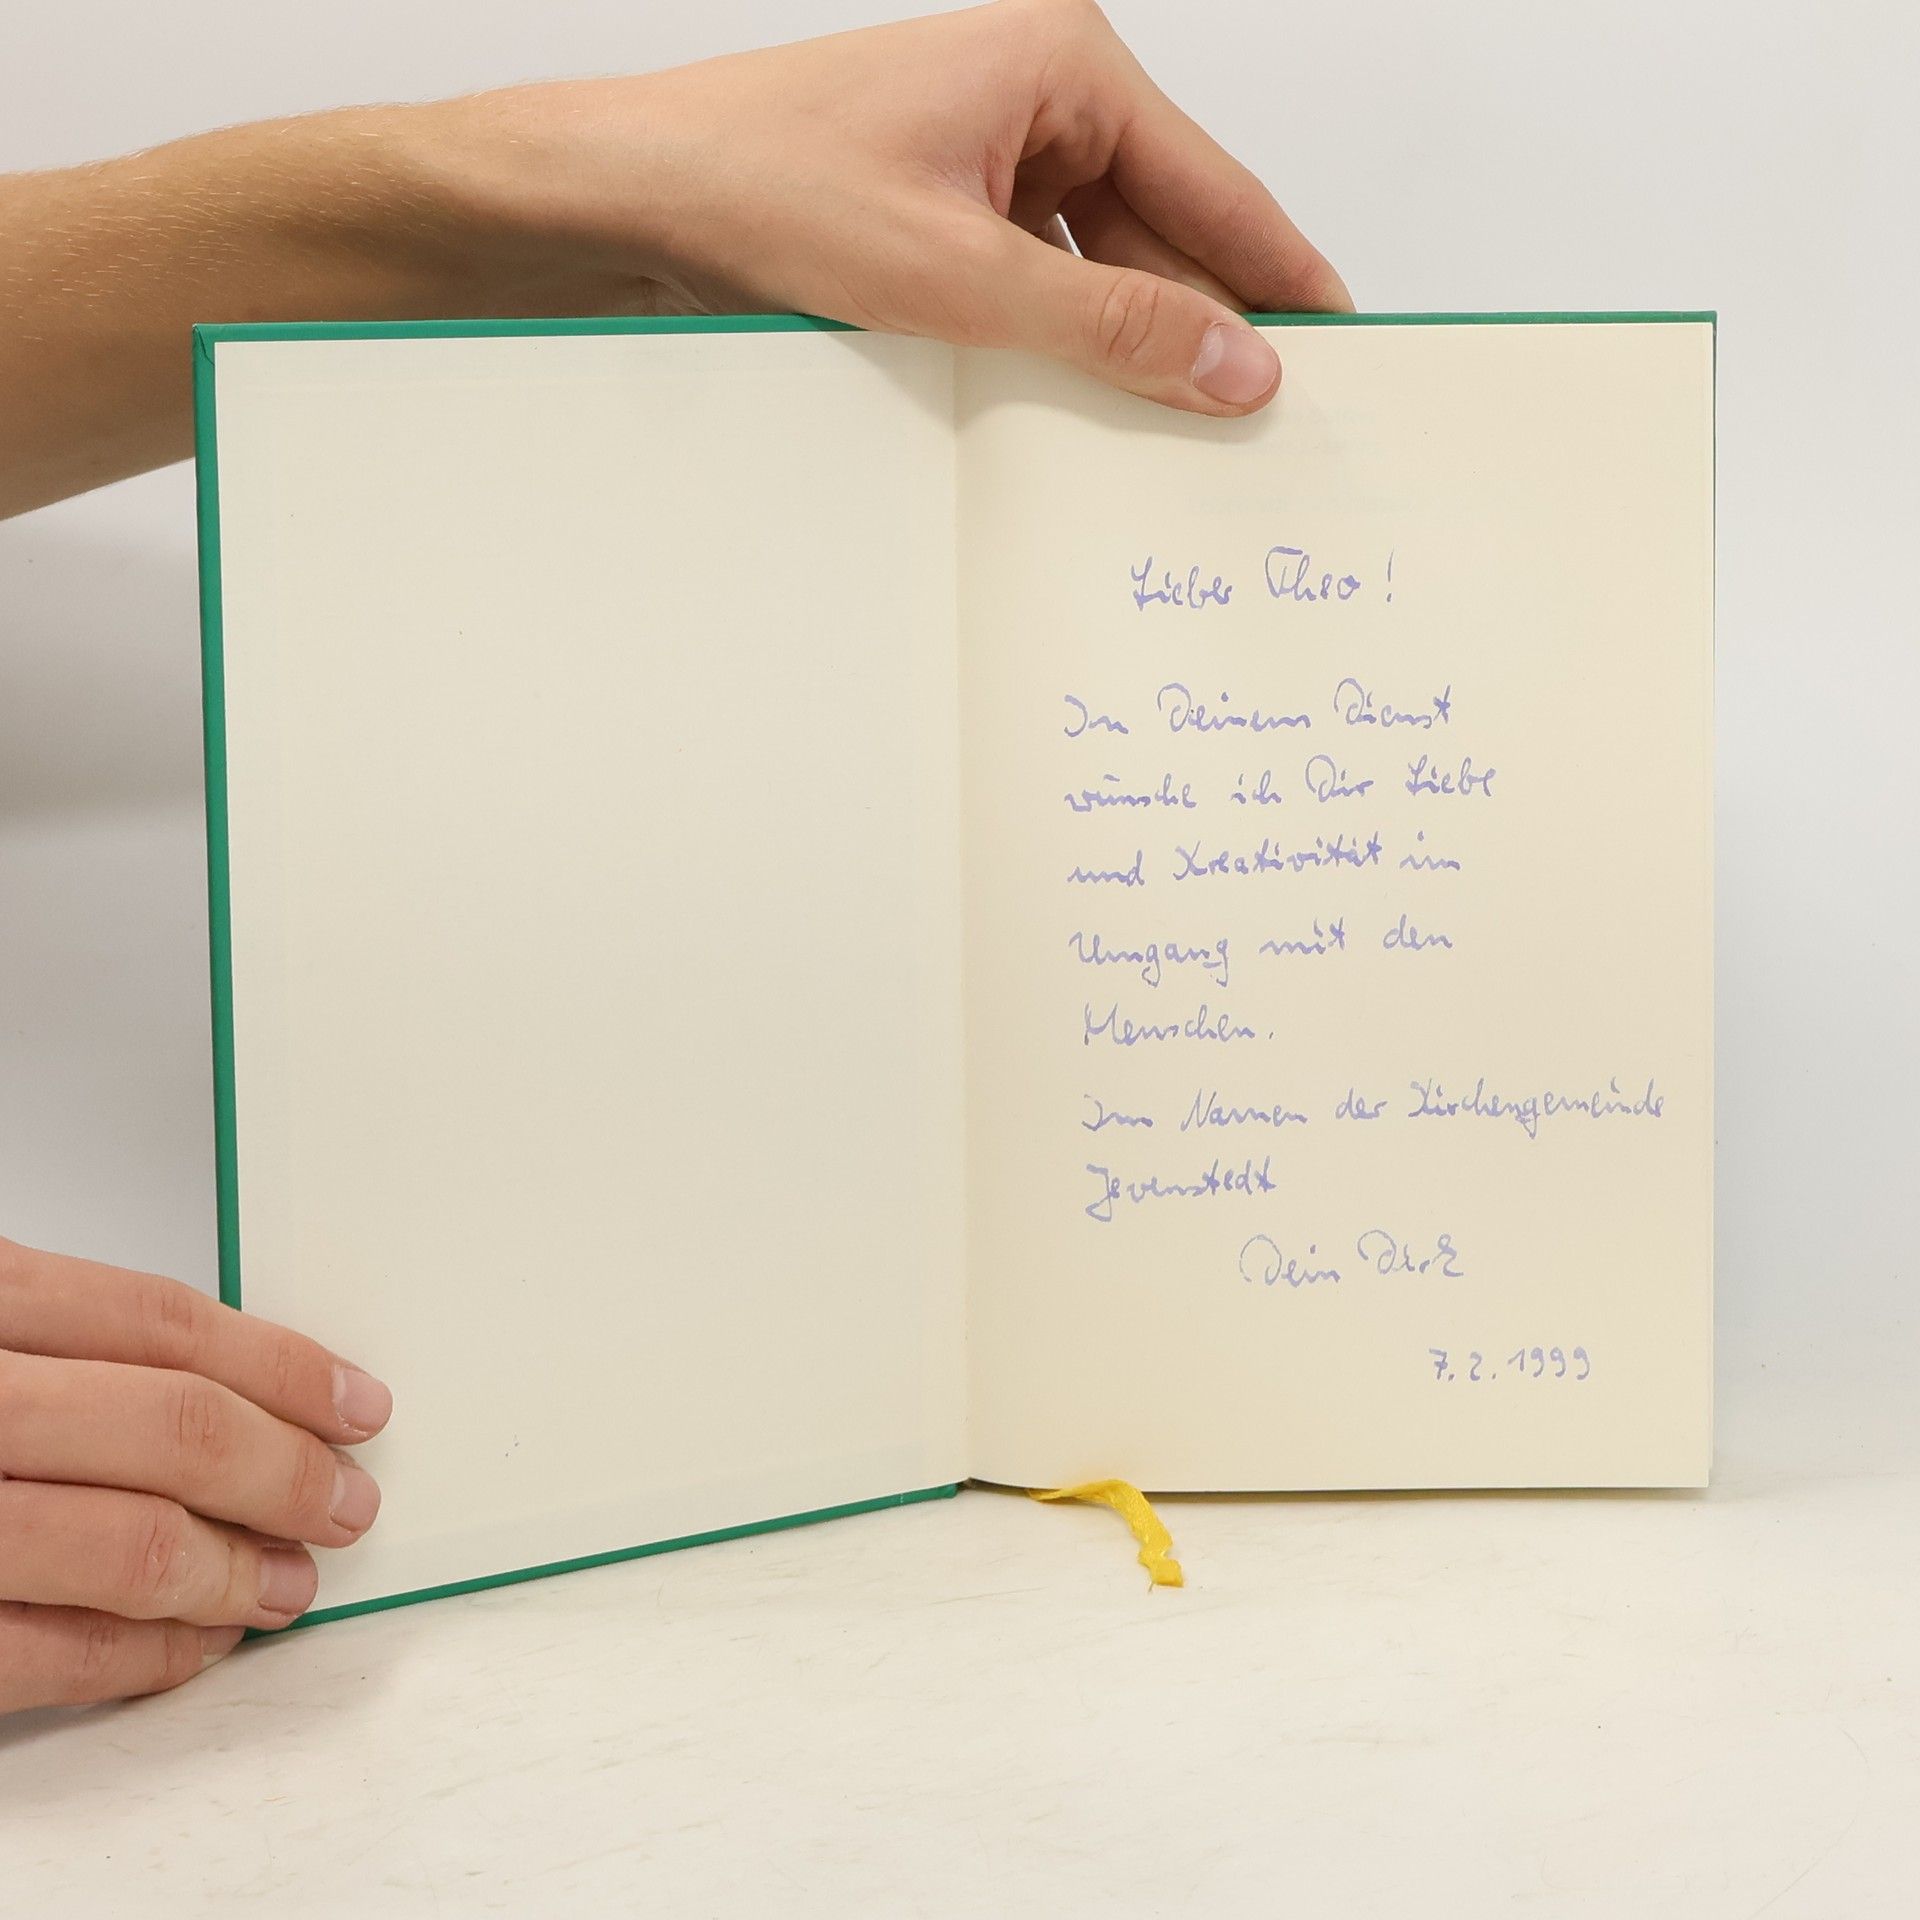 Lieber Theo!
In Deinem Dienst
wünsche ich Dir Liebe
und Kreativität im
Umgang mit den
Menschen.
Im Namen der Kirchengemeinde
Jevenstedt
Dein Dirk
7.2.1999